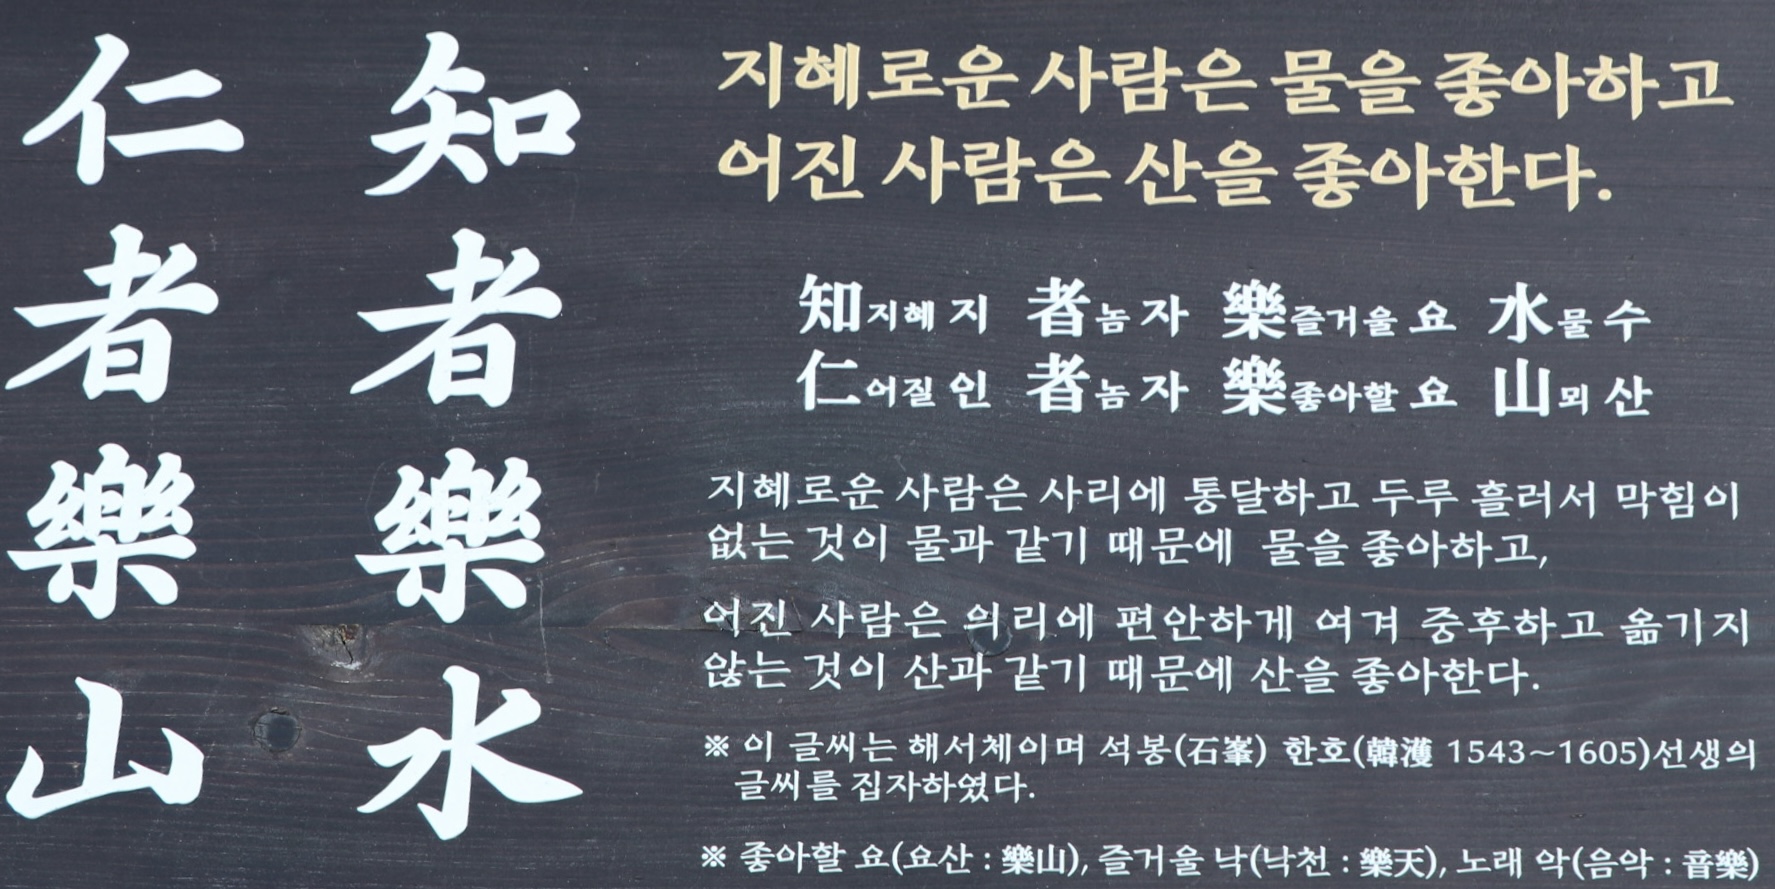 知者樂水
仁者樂山
지혜로운 사람은 물을 좋아하고
어진 사람은 산을 좋아한다.
知지혜 지 者놈 자 樂즐거울 요 水물 수
仁어질 인 者놈 자 樂좋아할 요 山뫼 산
지혜로운 사람은 사리에 통달하고 두루 흘러서 막힘이
없는 것이 물과 같기 때문에 물을 좋아하고,
어진 사람은 의리에 편안하게 여겨 중후하고 옮기지
않는 것이 산과 같기 때문에 산을 좋아한다.
※ 이 글씨는 해서체이며 석봉(石峯) 한호(韓濩 1543~1605)선생의
글씨를 집자하였다.
※ 좋아할 요(요산 : 樂山), 즐거울 낙(낙천 : 樂天), 노래 악(음악 : 音樂)